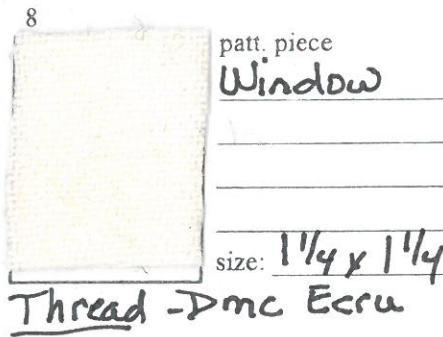 8
patt. piece
Window
size: 1 1/4 x 1 1/4
Thread - Dmc Ecru